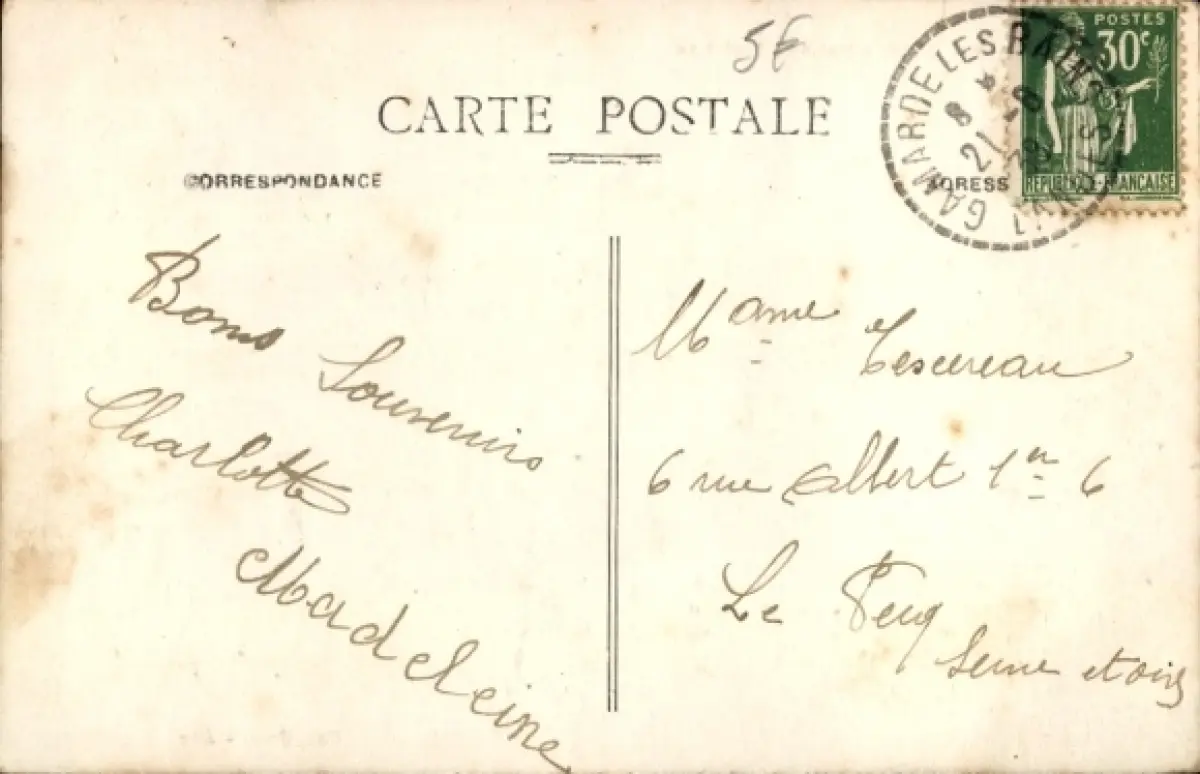 5€
CARTE POSTALE
CORRESPONDANCE
ADRESSE
GAMARDE LES BAINS
LANDES
POSTES
30c
REPUBLIQUE FRANCAISE
Bons Souvenirs
Charlotte
Madeleine
Mame
6 rue Albert 1er 6
Le Pecq
Seine et oise